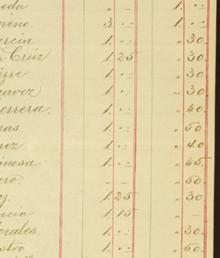 eda " " 1. "
eno 3. " 1. "
arcia 1. " " 30.
Cruz 1. 25 " 30.
1. " " 30.
avez) 1. " " 30.
errera 1. " " 40.
nas 1. " " 50.
nez 1. " " 40.
inosa 1. " " 45.
ero. " — " 50.
z. 1. 25 " 30.
ncia 1. 15 " —
orales. 1. " " 30.
astro 1. " " 50.